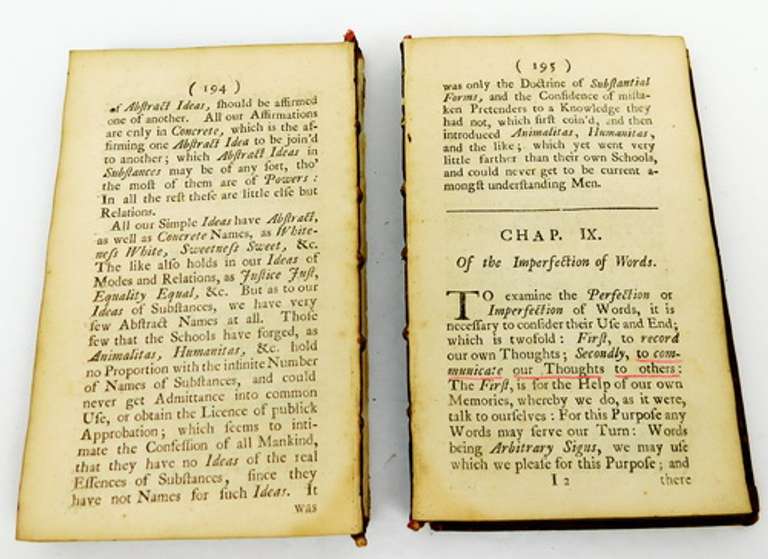 ( 194 )
of Abſtract Ideas, ſhould be affirmed
one of another. All our Affirmations
are only in Concrete, which is the af-
firming one Abſtract Idea to be join'd
to another; which Abſtract Ideas in
Subſtances may be of any ſort, tho'
the moſt of them are of Powers:
In all the reſt theſe are little elſe but
Relations.
All our Simple Ideas have Abſtract,
as well as Concrete Names, as White-
neſs White, Sweetneſs Sweet, &c.
The like alſo holds in our Ideas of
Modes and Relations, as Juſtice Juſt,
Equality Equal, &c. But as to our
Ideas of Subſtances, we have very
few Abſtract Names at all. Thoſe
few that the Schools have forged, as
Animalitas, Humanitas, &c. hold
no Proportion with the infinite Number
of Names of Subſtances, and could
never get Admittance into common
Uſe, or obtain the Licence of publick
Approbation; which ſeems to inti-
mate the Confeſſion of all Mankind,
that they have no Ideas of the real
Eſſences of Subſtances, ſince they
have not Names for ſuch Ideas. It
was
( 195 )
was only the Doctrine of Subſtantial
Forms, and the Confidence of miſta-
ken Pretenders to a Knowledge they
had not, which firſt coin'd, and then
introduced Animalitas, Humanitas,
and the like; which yet went very
little farther than their own Schools,
and could never get to be current a-
mongſt underſtanding Men.
CHAP. IX.
Of the Imperfection of Words.
TO examine the Perfection or
Imperfection of Words, it is
neceſſary to conſider their Uſe and End;
which is twofold: Firſt, to record
our own Thoughts; Secondly, to com-
municate our Thoughts to others:
The Firſt, is for the Help of our own
Memories, whereby we do, as it were,
talk to ourſelves: For this Purpoſe any
Words may ſerve our Turn: Words
being Arbitrary Signs, we may uſe
which we pleaſe for this Purpoſe; and
I 2 there